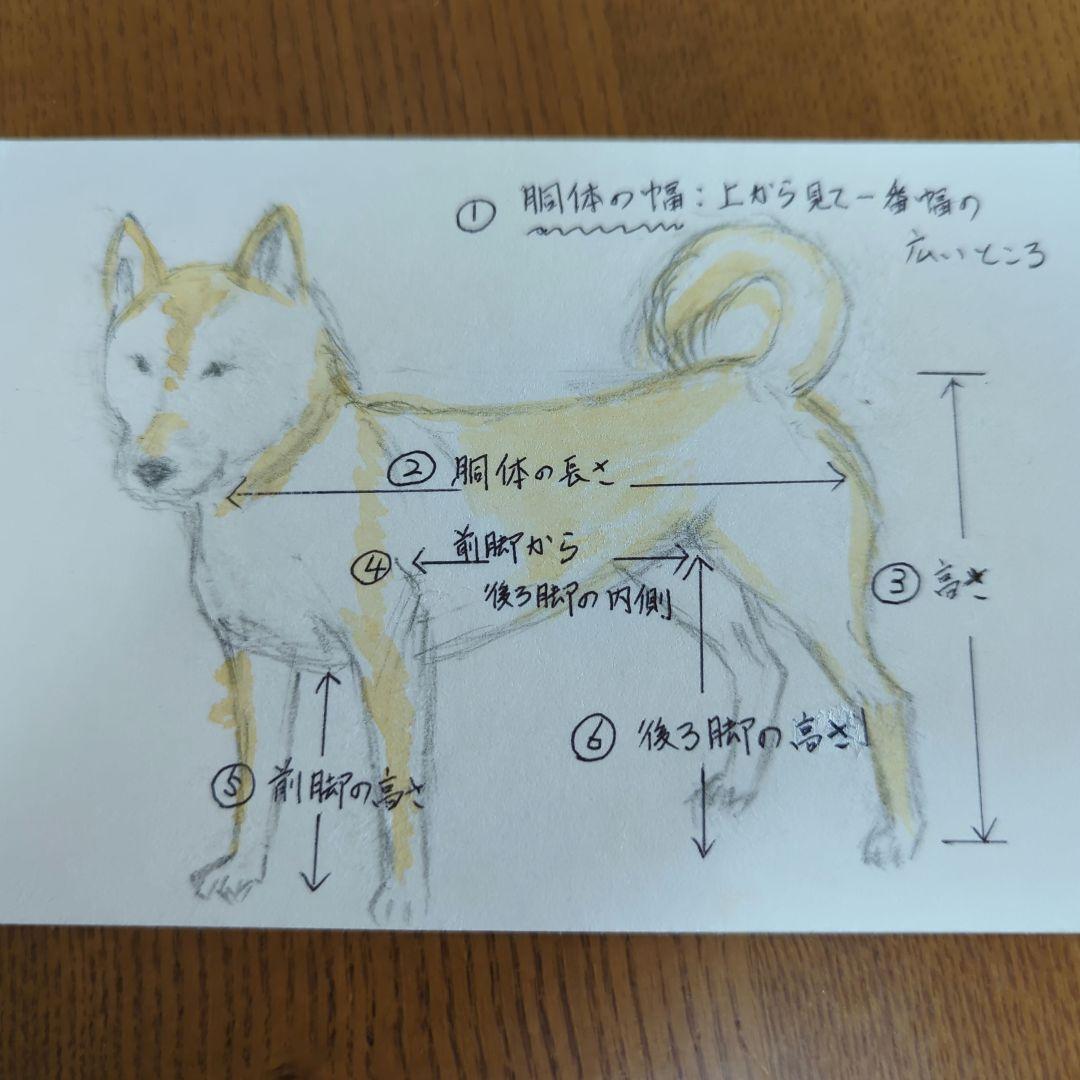 ① 胴体の幅：上から見て一番幅の
広いところ
② 胴体の長さ
④ 前脚から
後ろ脚の内側
③ 高さ
⑥ 後ろ脚の高さ
⑤ 前脚の高さ